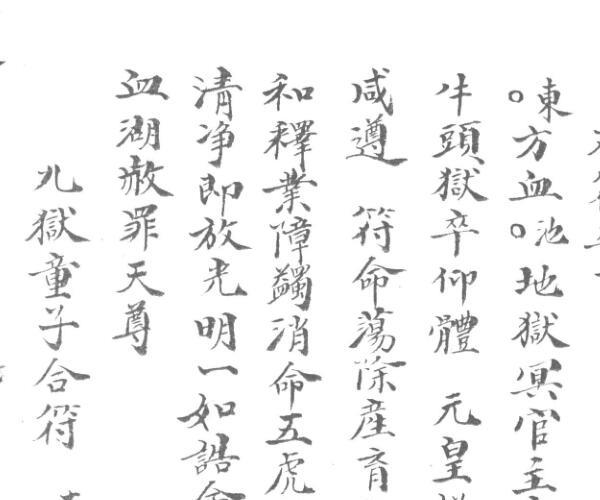 ○東方血○池地獄冥官主
牛頭獄卒仰體 元皇
咸遵 符命蕩除産育
和釋業障蠲消命五虎
清净即放光明一如誥
血湖赦罪天尊
九獄童子合符